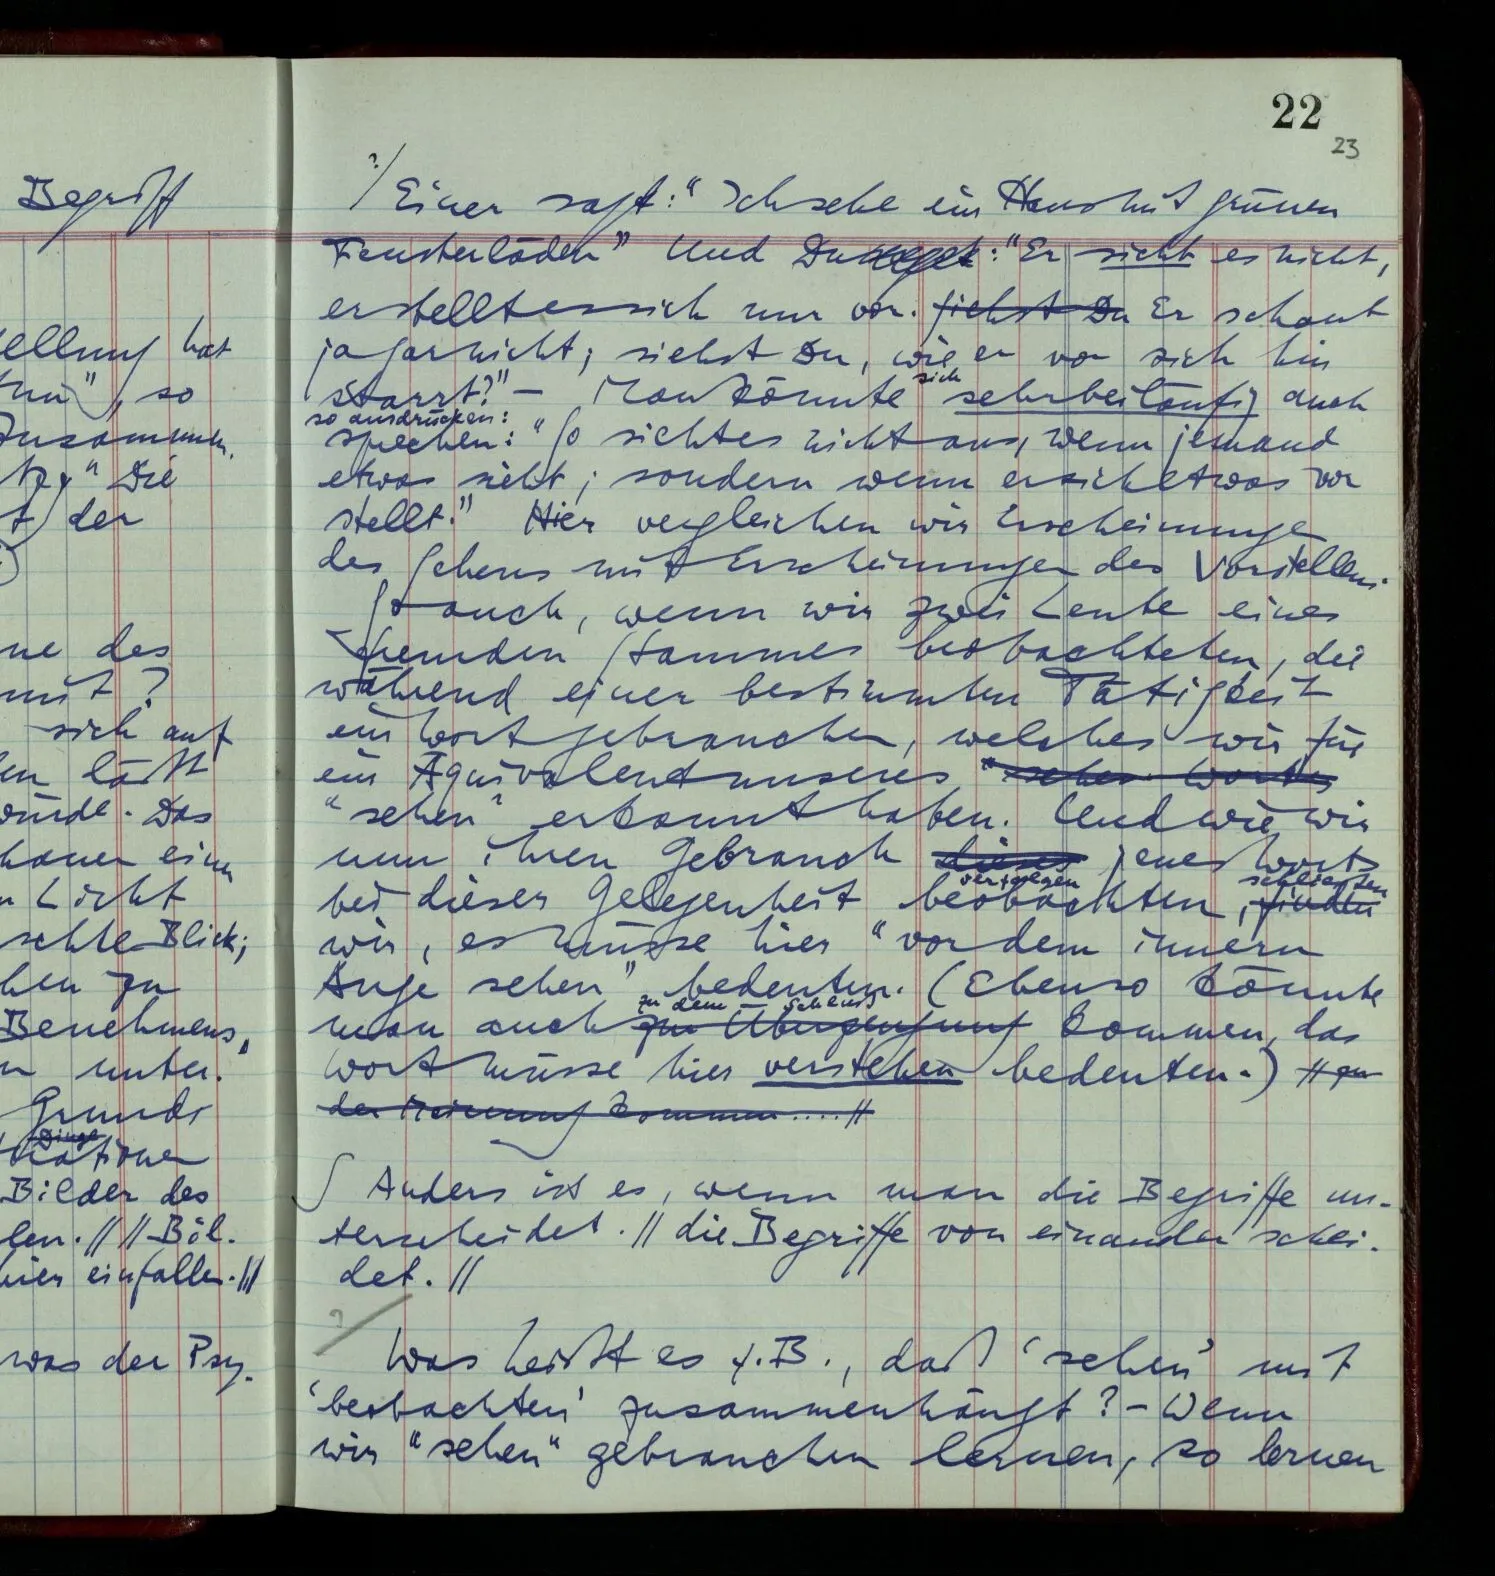 Begriff
ellung hat
tun", so
Zusammen-
Die
der
ne des
mit?
sich auf
en läßt
würde. Das
hauen eine
n Licht
schte Blick;
hen zu
Benehmens,
n unter.
Grunds
Dinge
Bilder des
len. // // Bil-
hier einfallen. //
was der Psy-
22
23
?/ Einer sagt: "Ich sehe ein Haus mit grünen
Fensterläden" Und Du sagst: "Er sieht es nicht,
er stellt es sich nur vor. siehst Du Er schaut
ja gar nicht; siehst Du, wie er vor sich hin
starrt?" – Man könnte sich sehr beiläufig auch
so ausdrücken:
sprechen: "So sieht es nicht aus, wenn jemand
etwas sieht; sondern wenn er sich etwas vor
stellt." Hier vergleichen wir Erscheinungen
des Sehens mit Erscheinungen des Vorstellens.
So auch, wenn wir zwei Leute eines
fremden Stammes beobachteten, die
während einer bestimmten Tätigkeit
ein Wort gebrauchen, welches wir für
ein Äquivalent unseres "sehen" Wortes
"sehen" erkannt haben. Und wie wir
nun ihren Gebrauch dieses jenes Worts
verfolgen schließen
bei dieser Gelegenheit beobachten, finden
wir, es müsse hier "vor dem innern
Auge sehen" bedeuten. (Ebenso könnte
zu dem Schluß
man auch zur Überzeugung kommen, das
Wort müsse hier verstehen bedeuten.) // zu
der Meinung kommen .... //
∫ Anders ist es, wenn man die Begriffe un-
terscheidet. // die Begriffe von einander schei-
det. //
?/ Was heißt es z.B., daß 'sehen' mit
'beobachten' zusammenhängt? – Wenn
wir "sehen" gebrauchen lernen, so lernen